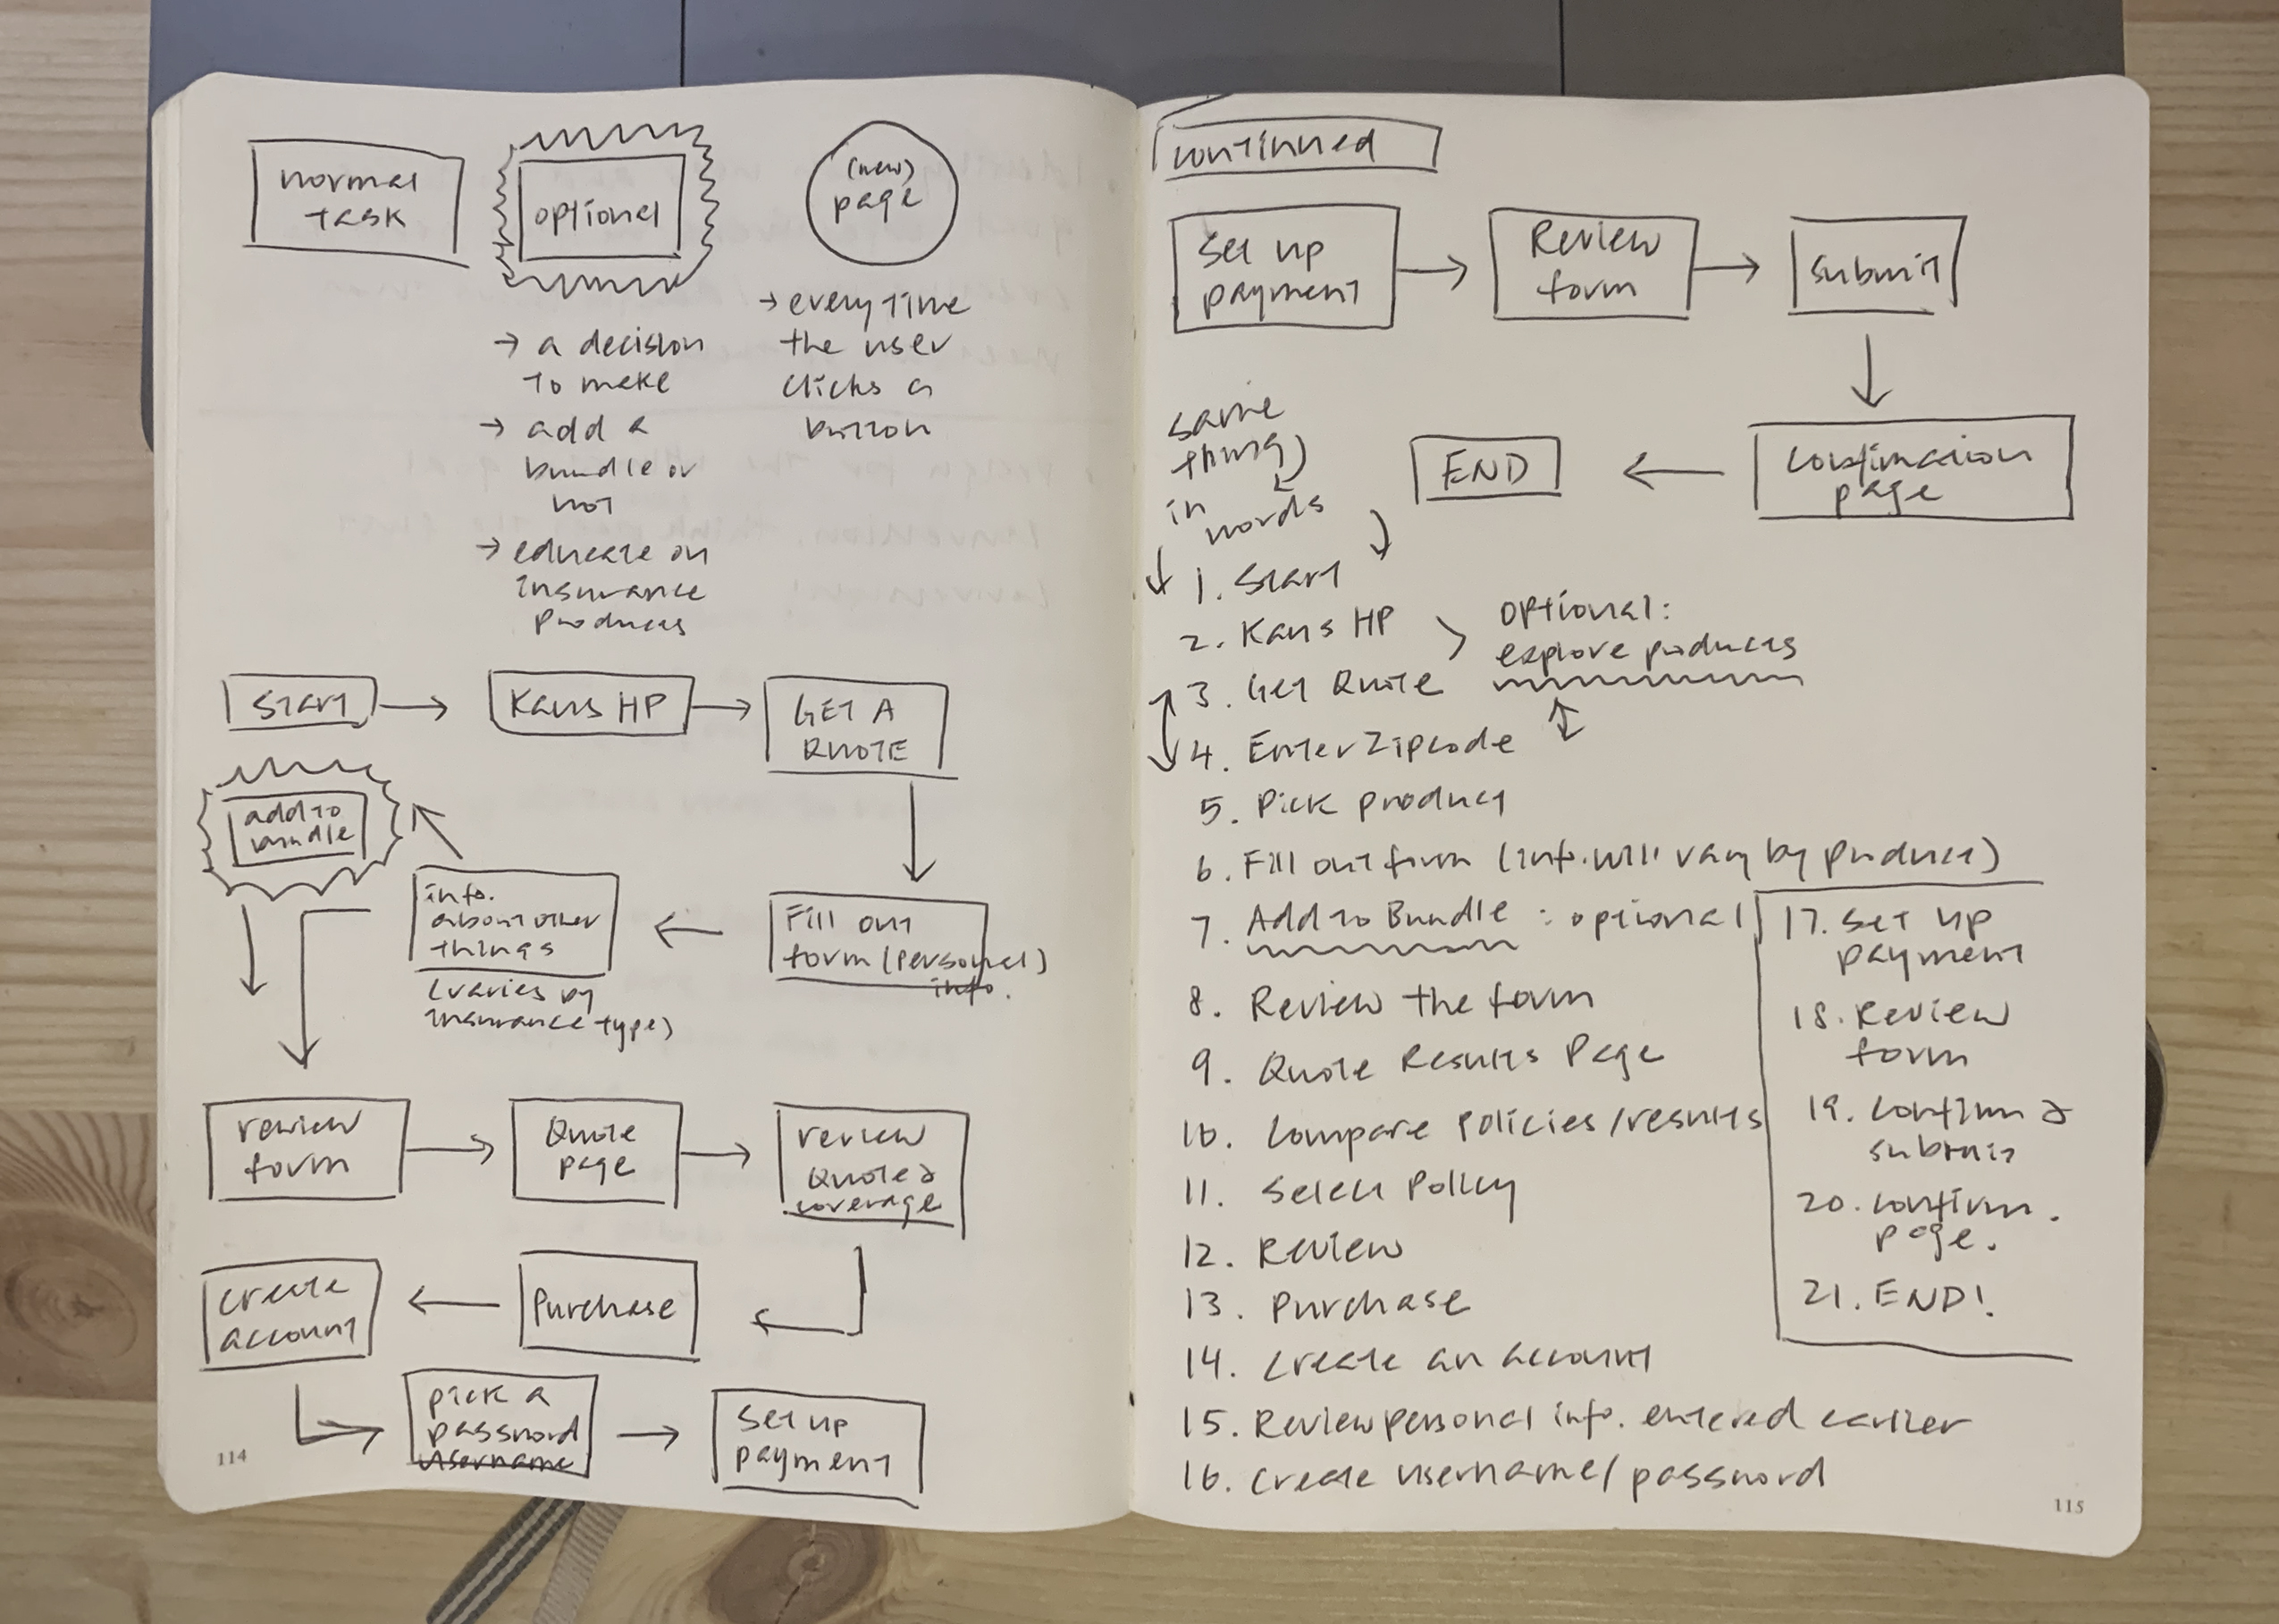 normal
task
optional
(new)
page
→ a decision
to make
→ add a
bundle or
not
→ educate on
insurance
products
→ every time
the user
clicks a
button
Start
Kaus HP
GET A
QUOTE
add to
bundle
info.
about other
things
(varies by
insurance type)
Fill out
form (personal)
info.
review
form
Quote
page
review
Quote &
coverage
create
account
Purchase
pick a
password
username
set up
payment
114
continued
Set up
payment
Review
form
submit
END
confirmation
page
same
thing
in
words
1. Start
2. Kaus HP
optional:
explore products
3. Get Quote
4. Enter Zipcode
5. Pick product
6. Fill out form (info. will vary by product)
7. Add to Bundle : optional
8. Review the form
9. Quote Results Page
10. Compare Policies/results
11. Select Policy
12. Review
13. Purchase
14. create an account
15. Review personal info. entered earlier
16. create username/password
17. Set up
payment
18. Review
form
19. confirm &
submit
20. confirm.
page.
21. END!
115